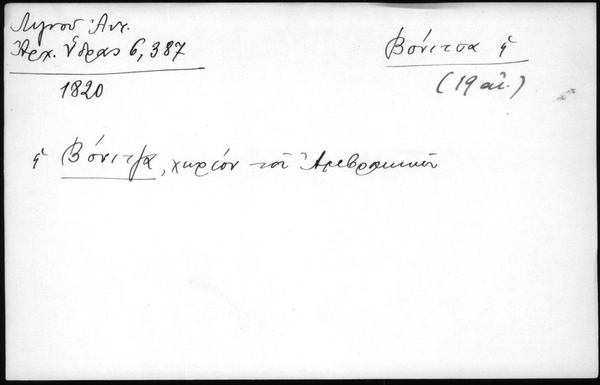 Λιγνοῦ Ἀντ.
Ἀρχ. Ὕδρας 6, 387
1820
Βόνιτσα ἡ
(19 αἰ.)
ἡ Βόνιτζα, χωρίον τοῦ Ἀμβρακικοῦ